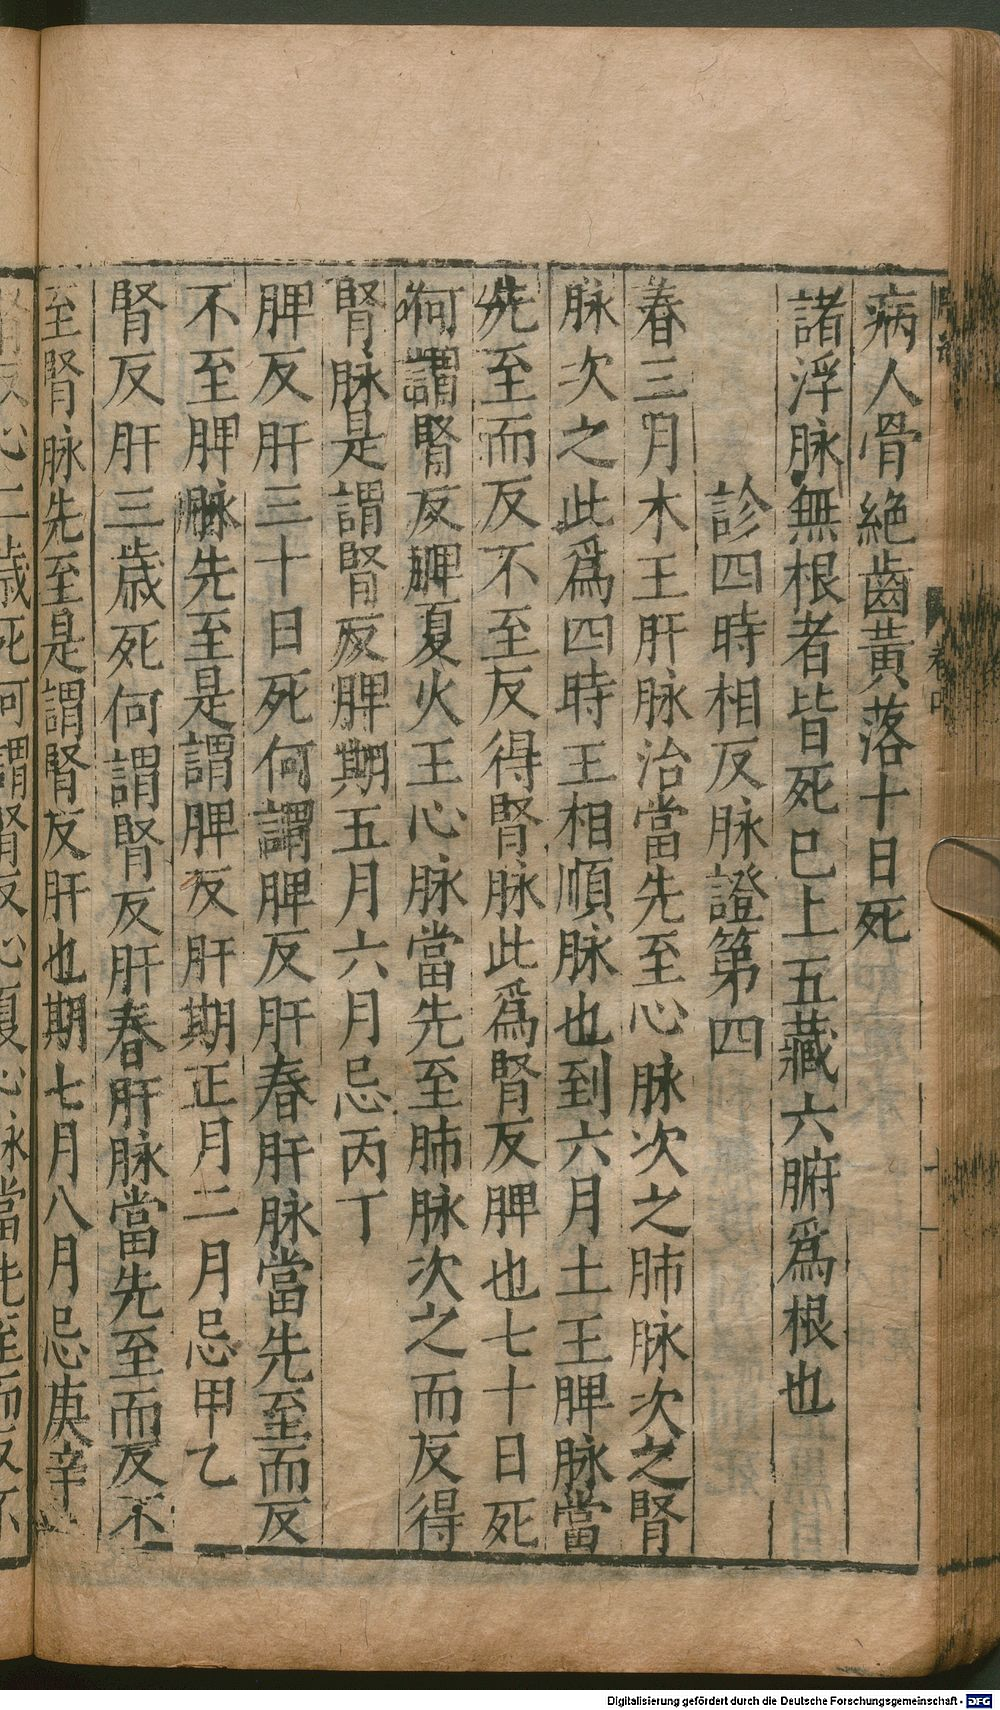 病人骨絶齒黃落十日死
諸浮脉無根者皆死已上五藏六腑爲根也
診四時相反脉證第四
春三月木王肝脉治當先至心脉次之肺脉次之腎
脉次之此爲四時王相順脉也到六月土王脾脉當
先至而反不至反得腎脉此爲腎反脾也七十日死
何謂腎反脾夏火王心脉當先至肺脉次之而反得
腎脉是謂腎反脾期五月六月忌丙丁
脾反肝三十日死何謂脾反肝春肝脉當先至而反
不至脾脉先至是謂脾反肝期正月二月忌甲乙
腎反肝三歲死何謂腎反肝春肝脉當先至而反不
至腎脉先至是謂腎反肝也期七月八月忌庚辛
腎反心二歲死何謂腎反心夏心脉當先至而反不
Digitalisierung gefördert durch die Deutsche Forschungsgemeinschaft - DFG